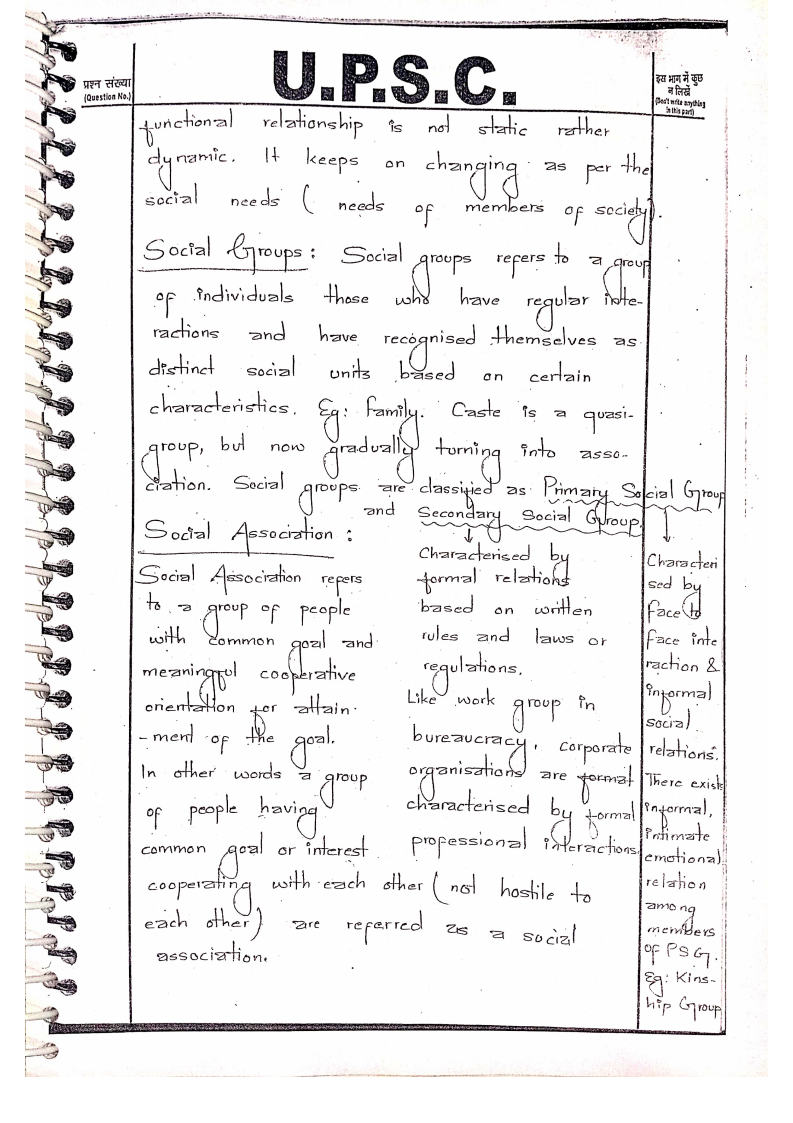 U.P.S.C.
प्रश्न संख्या
(Question No.)
इस भाग में कुछ
न लिखें
(Don't write anything
in this part)
functional relationship is not static rather
dynamic. It keeps on changing as per the
social needs ( needs of members of society).
Social Groups : Social groups refers to a group
of individuals those who have regular inte-
ractions and have recognised themselves as
distinct social units based on certain
characteristics. Eg: family. Caste is a quasi-
group, but now gradually turning into asso-
ciation. Social groups are classified as Primary Social Group
and Secondary Social Group.
Social Association :
Social Association refers
to a group of people
with common goal and
meaningful cooperative
orientation for attain-
-ment of the goal.
In other words a group
of people having
common goal or interest
cooperating with each other ( not hostile to
each other) are referred as a social
association.
Characterised by
formal relations
based on written
rules and laws or
regulations.
Like work group in
bureaucracy, corporate
organisations are formal
characterised by formal
professional interactions
Characteri
sed by
face to
face inte
raction &
informal
social
relations.
There exists
informal,
intimate
emotional
relation
among
members
of PSG.
Eg: Kins-
hip Group